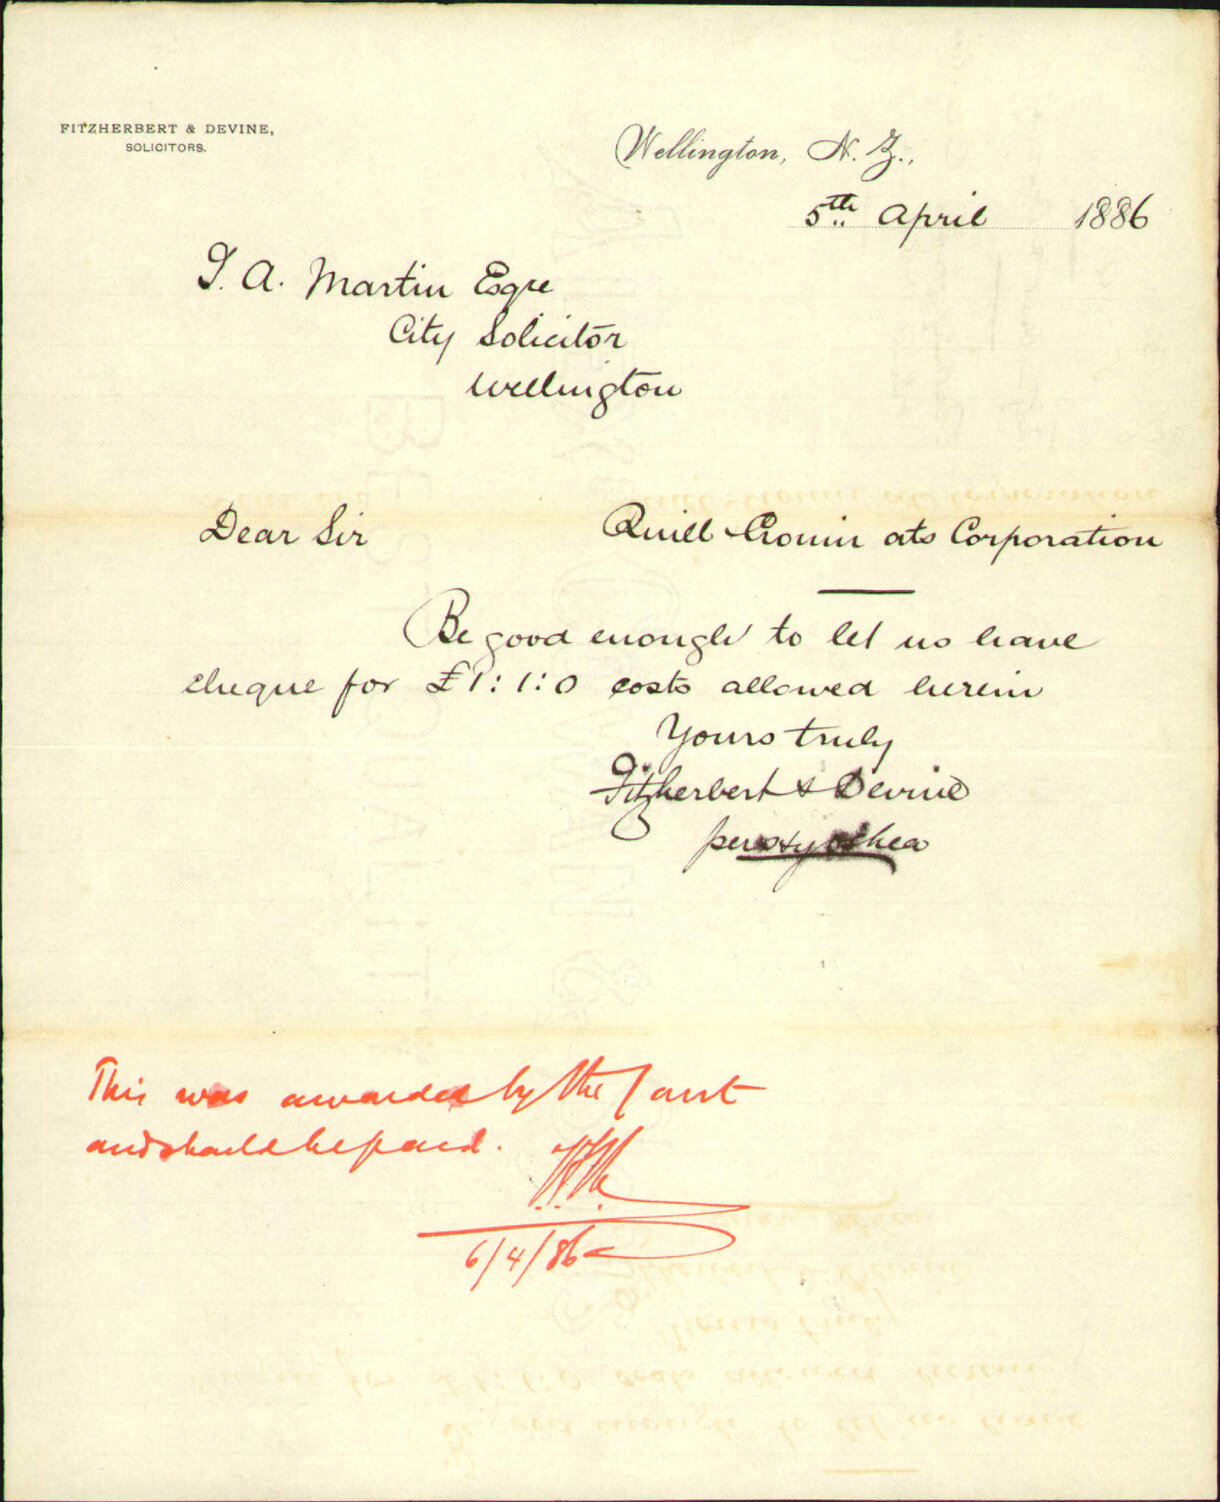 FITZHERBERT & DEVINE,
SOLICITORS.
Wellington, N. Z.,
5th April 1886
T. A. Martin Esqre
City Solicitor
Wellington
Dear Sir
Quill Cronin ats Corporation
Be good enough to let us have
cheque for £1:1:0 costs allowed herein
Yours truly
Fitzherbert & Devine
per
This was awarded by the Court
and should be paid.
6/4/86